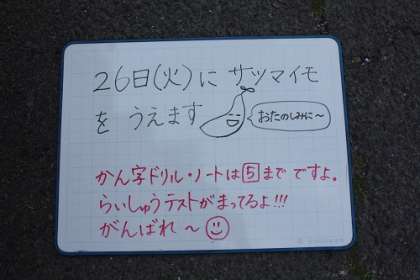 26日(火)に サツマイモ
を うえます
おたのしみに～
かん字ドリル・ノートは5まで ですよ。
らいしゅうテストがまってるよ!!!
がんばれ～